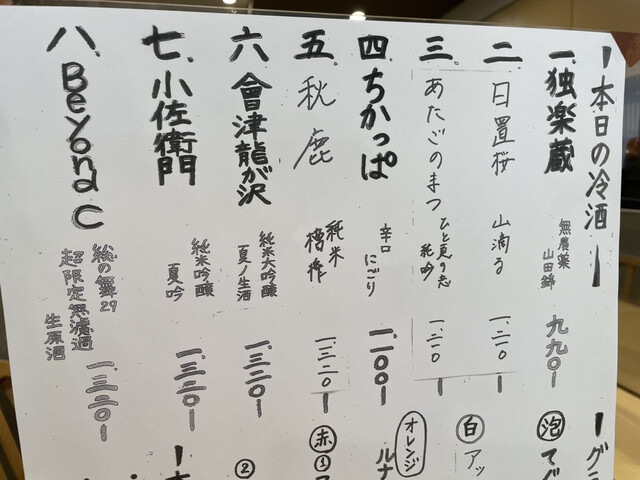 本日の冷酒
一.独楽蔵 無農薬 山田錦 九九〇
二.日置桜 山滴る 一、二一〇
三.あたごのまつ ひと夏の恋 純吟 一、二一〇
四.ちかっぱ 辛口 にごり 一、一〇〇
五.秋鹿 純米 槽搾 一、三二〇
六.會津龍が沢 純米大吟醸 夏ノ生酒 一、三二〇
七.小佐衛門 純米吟醸 夏吟 一、三二〇
八.Beyond C 総の舞29 超限定無濾過 生原酒 一、三二〇
グラ
泡 てぐ
白 アッ
オレンジ ルナ
赤 ①
②